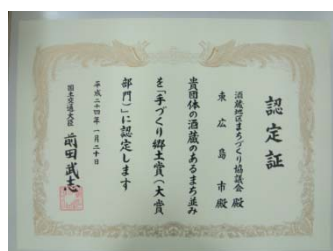 認定証
酒蔵地区まちづくり協議会 殿
東広島市 殿
貴団体の酒蔵のあるまち並み
を「手づくり郷土賞（大賞
部門）」に認定します
平成二十四年一月二十日
国土交通大臣 前田武志